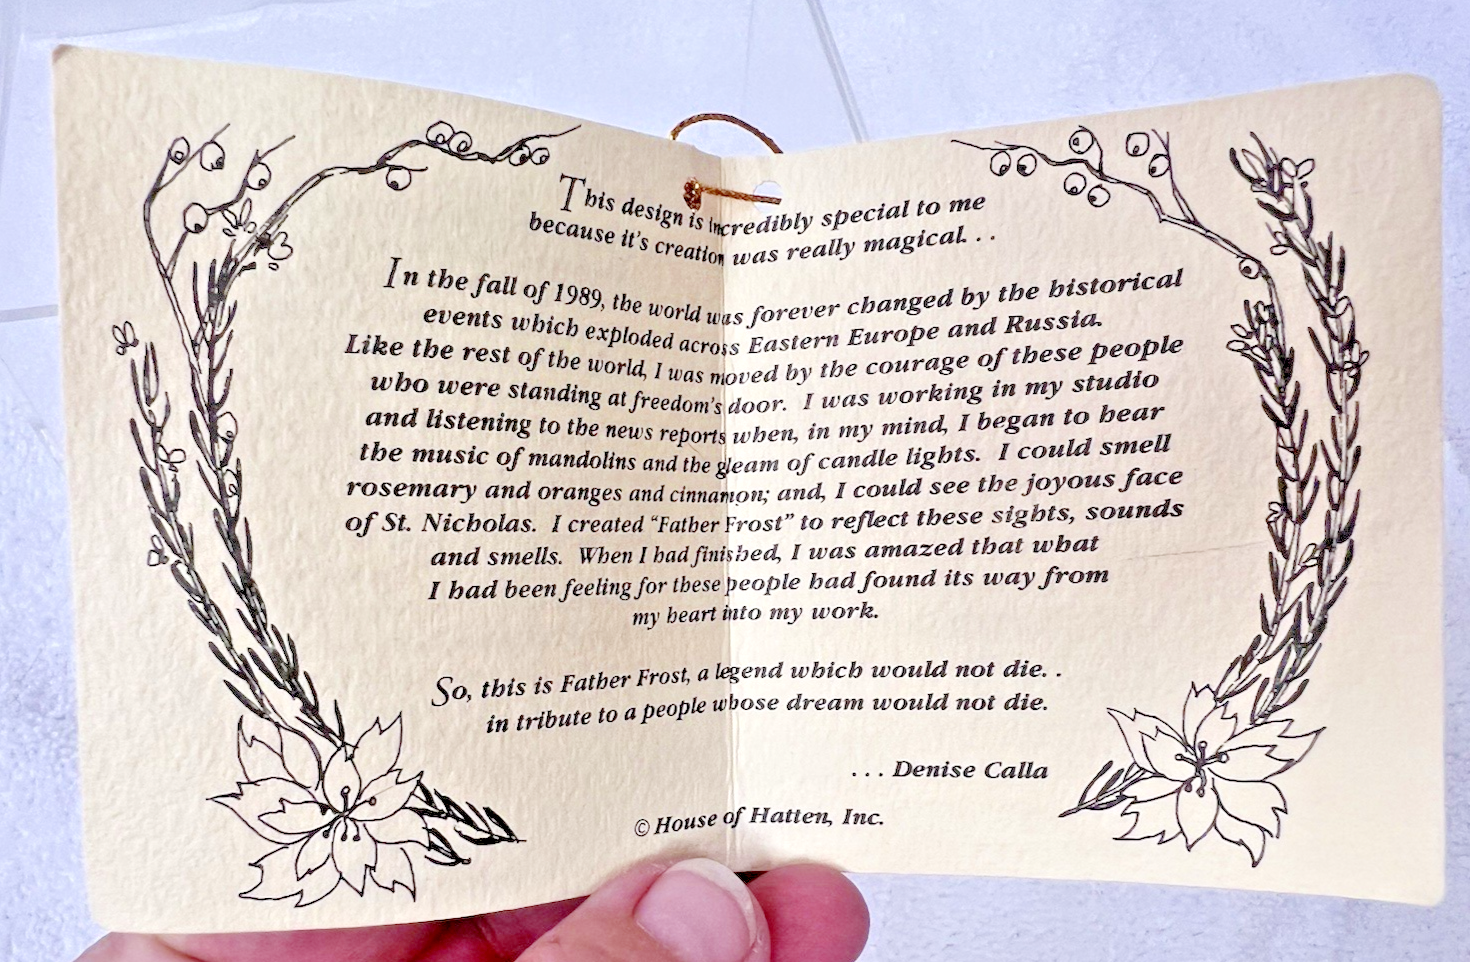 This design is incredibly special to me
because it's creation was really magical. . .
In the fall of 1989, the world was forever changed by the historical
events which exploded across Eastern Europe and Russia.
Like the rest of the world, I was moved by the courage of these people
who were standing at freedom's door. I was working in my studio
and listening to the news reports when, in my mind, I began to hear
the music of mandolins and the gleam of candle lights. I could smell
rosemary and oranges and cinnamon; and, I could see the joyous face
of St. Nicholas. I created “Father Frost” to reflect these sights, sounds
and smells. When I had finished, I was amazed that what
I had been feeling for these people had found its way from
my heart into my work.
So, this is Father Frost, a legend which would not die. .
in tribute to a people whose dream would not die.
. . . Denise Calla
© House of Hatten, Inc.